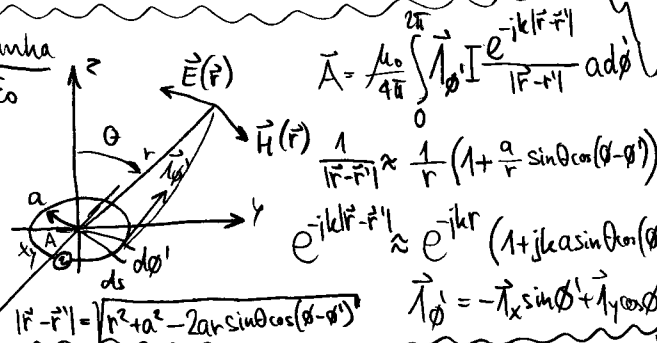 z
E⃗(r⃗)
θ
r
1⃗ϕ'
H⃗(r⃗)
a
y
A
x
dϕ'
ds
|r⃗-r⃗'| = √(r²+a²-2ar sinθcos(ϕ-ϕ'))
A⃗ = μ₀/4π ∫₀^2π 1⃗ϕ' I e^(-jk|r⃗-r⃗'|)/|r⃗-r'| adϕ'
1/|r⃗-r⃗'| ≈ 1/r (1+ a/r sinθcos(ϕ-ϕ'))
e^(-jk|r⃗-r⃗'|) ≈ e^(-jkr) (1+jka sinθcos(ϕ
1⃗ϕ' = -1⃗x sinϕ'+1⃗y cosϕ